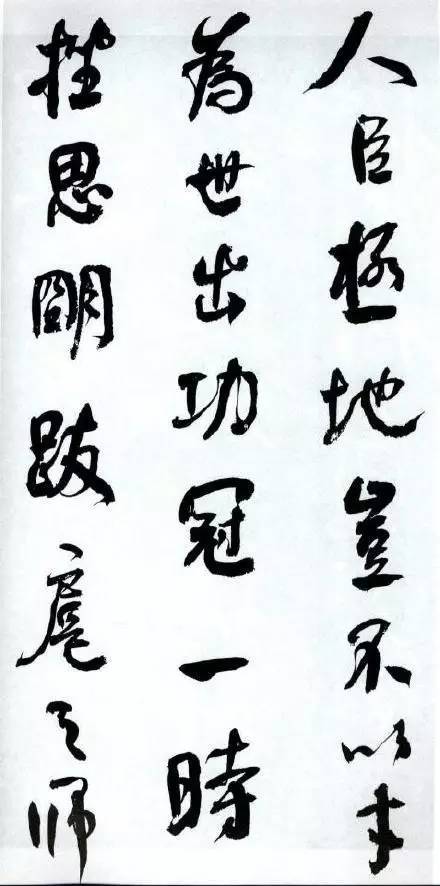 人臣極地豈不以才
為世出功冠一時
挫思明跋扈之師